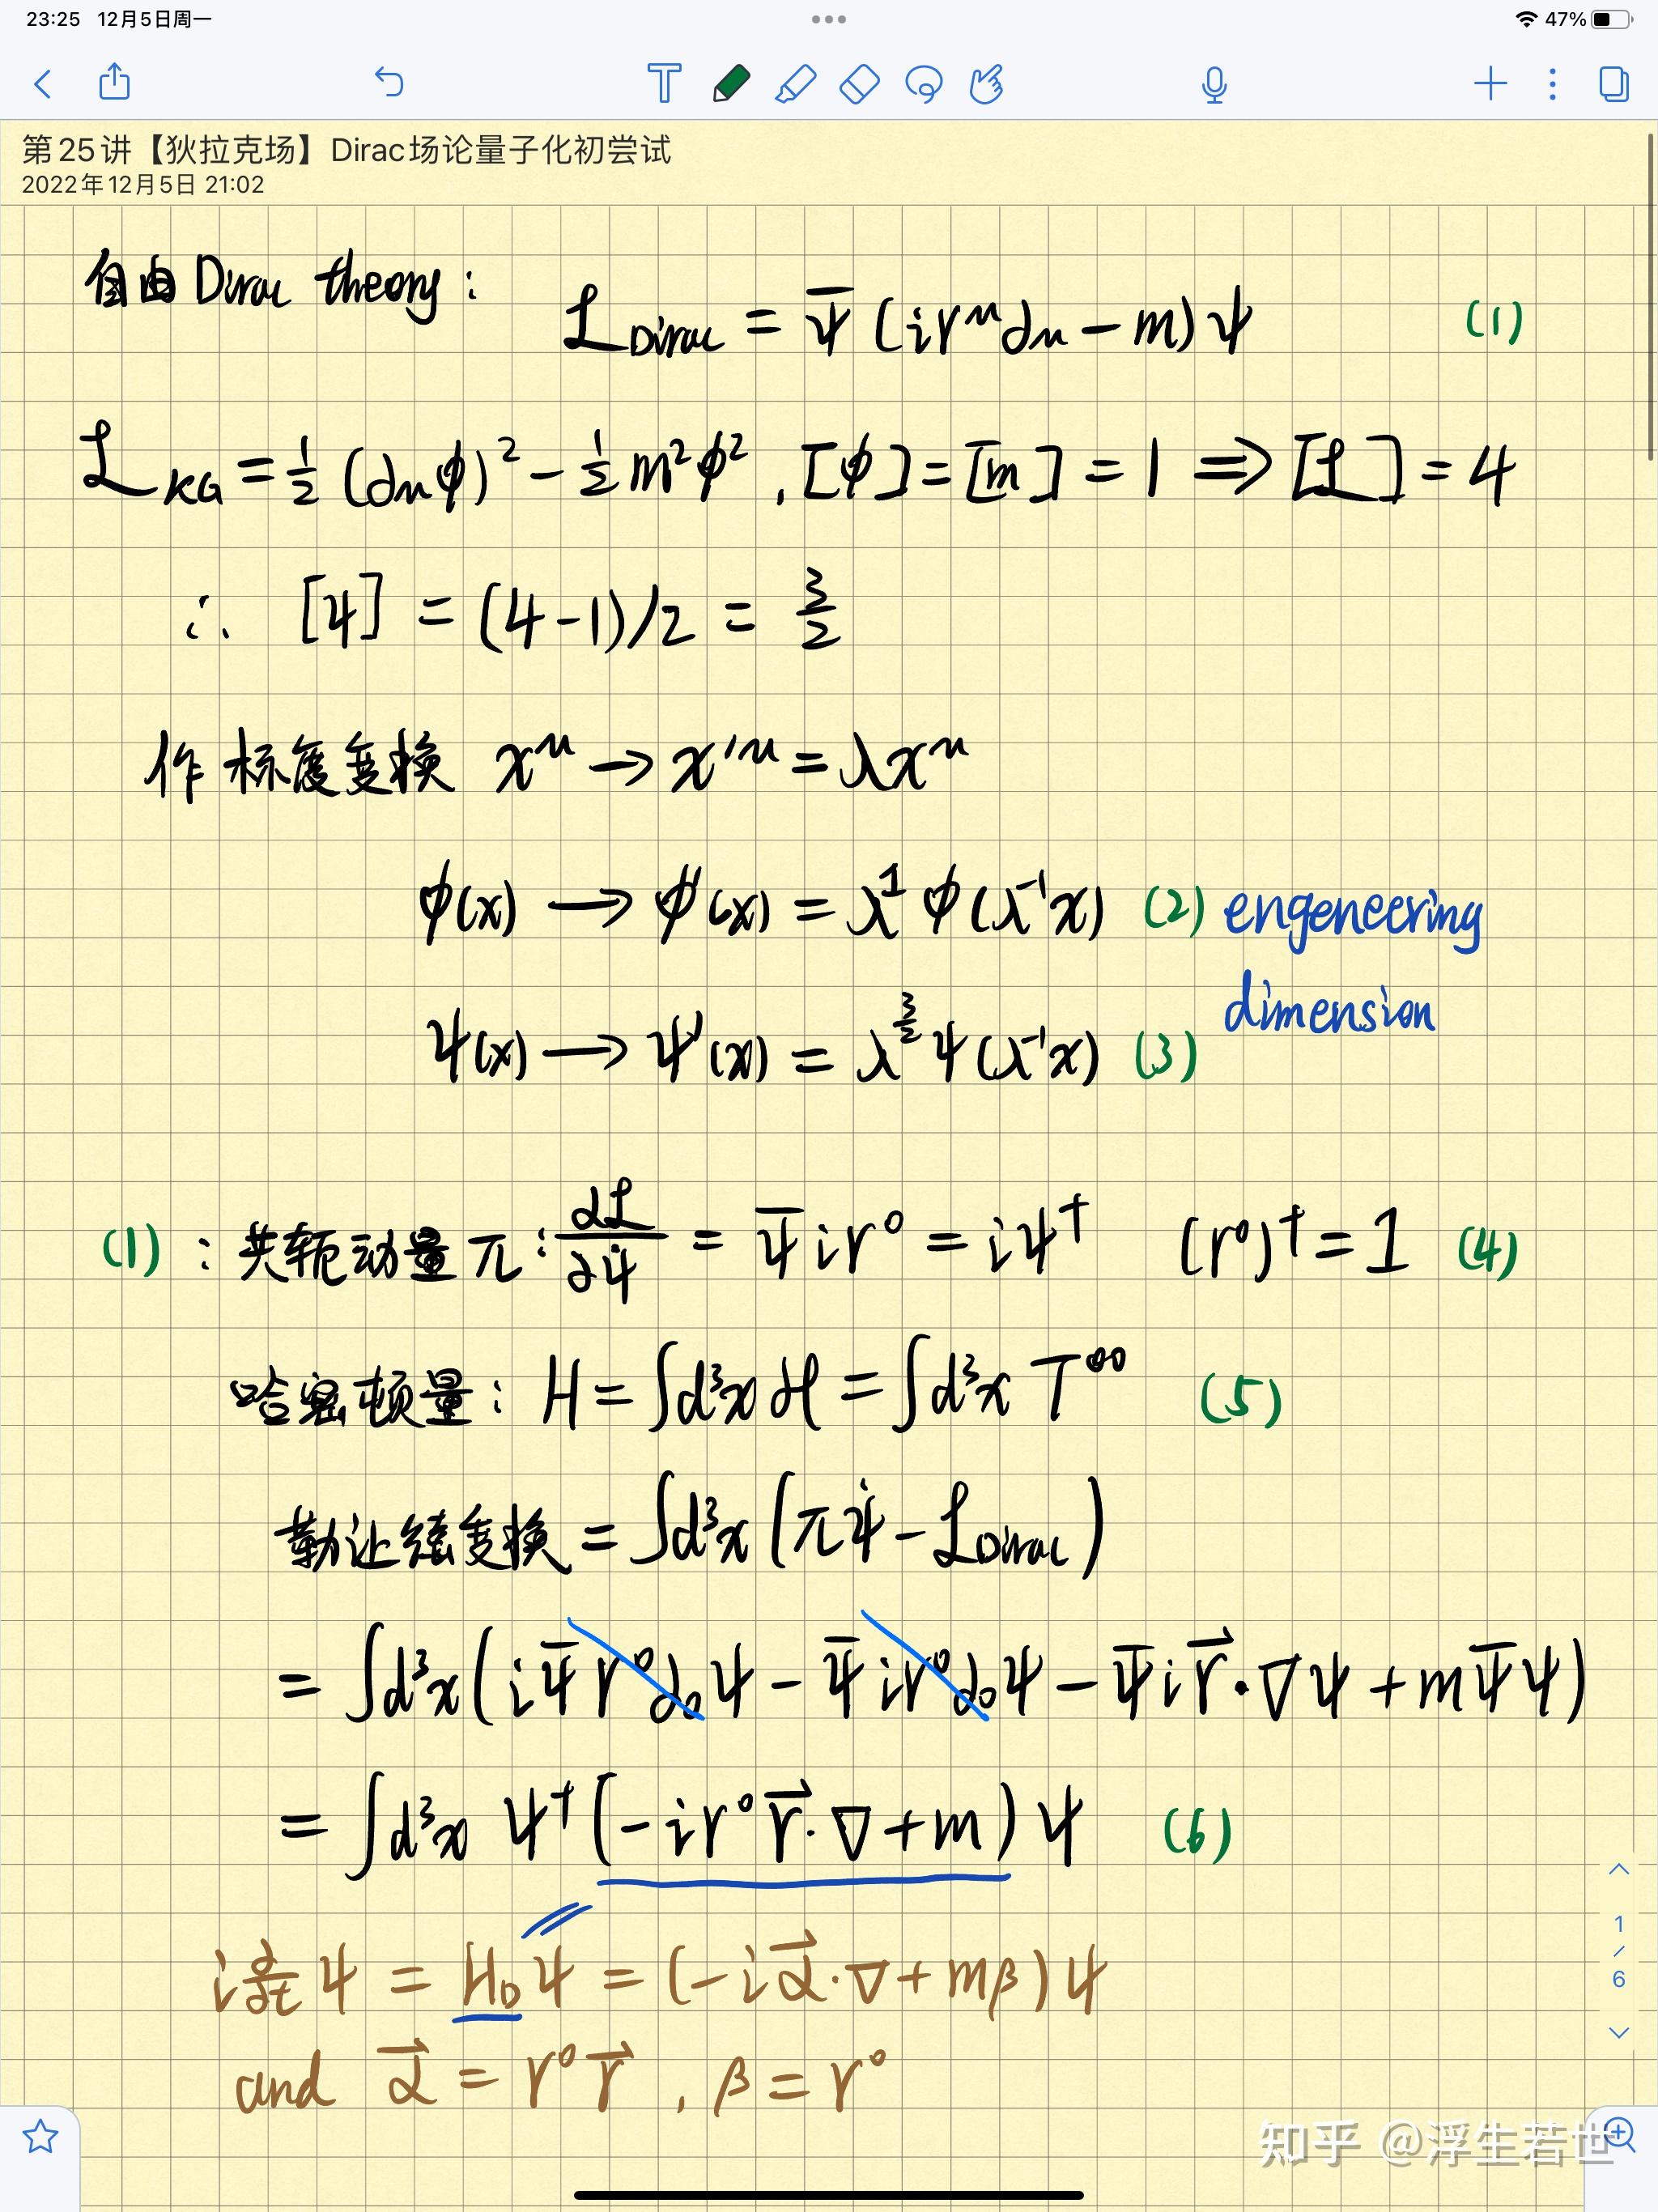 23:25 12月5日周一
47%
第25讲【狄拉克场】Dirac场论量子化初尝试
2022年12月5日 21:02
自由 Dirac theory: ℒ_Dirac = ψ̄ (iγ^μ∂_μ − m) ψ (1)
ℒ_KG = 1/2 (∂_μϕ)² − 1/2 m²ϕ² , [ϕ] = [m] = 1 ⇒ [ℒ] = 4
∴ [ψ] = (4−1)/2 = 3/2
作标度变换 x^μ → x'^μ = λx^μ
ϕ(x) → ϕ'(x) = λ^1 ϕ(λ^-1 x) (2) engeneering
dimension
ψ(x) → ψ'(x) = λ^3/2 ψ(λ^-1 x) (3)
(1) : 共轭动量 π : ∂ℒ/∂ψ̇ = ψ̄ iγ^0 = iψ† (γ^0)† = 1 (4)
哈密顿量 : H = ∫d³x ℋ = ∫d³x T^00 (5)
勒让德变换 = ∫d³x (πψ̇ − ℒ_Dirac)
= ∫d³x (iψ̄ γ^0∂_0 ψ − ψ̄ iγ^0∂_0 ψ − ψ̄ i γ⃗·∇ψ + mψ̄ψ)
= ∫d³x ψ† (−iγ^0 γ⃗·∇ + m) ψ (6)
i ∂/∂t ψ = H_D ψ = (−i α⃗·∇ + mβ) ψ
and α⃗ = γ^0 γ⃗ , β = γ^0
1
/
6
知乎 @浮生若世